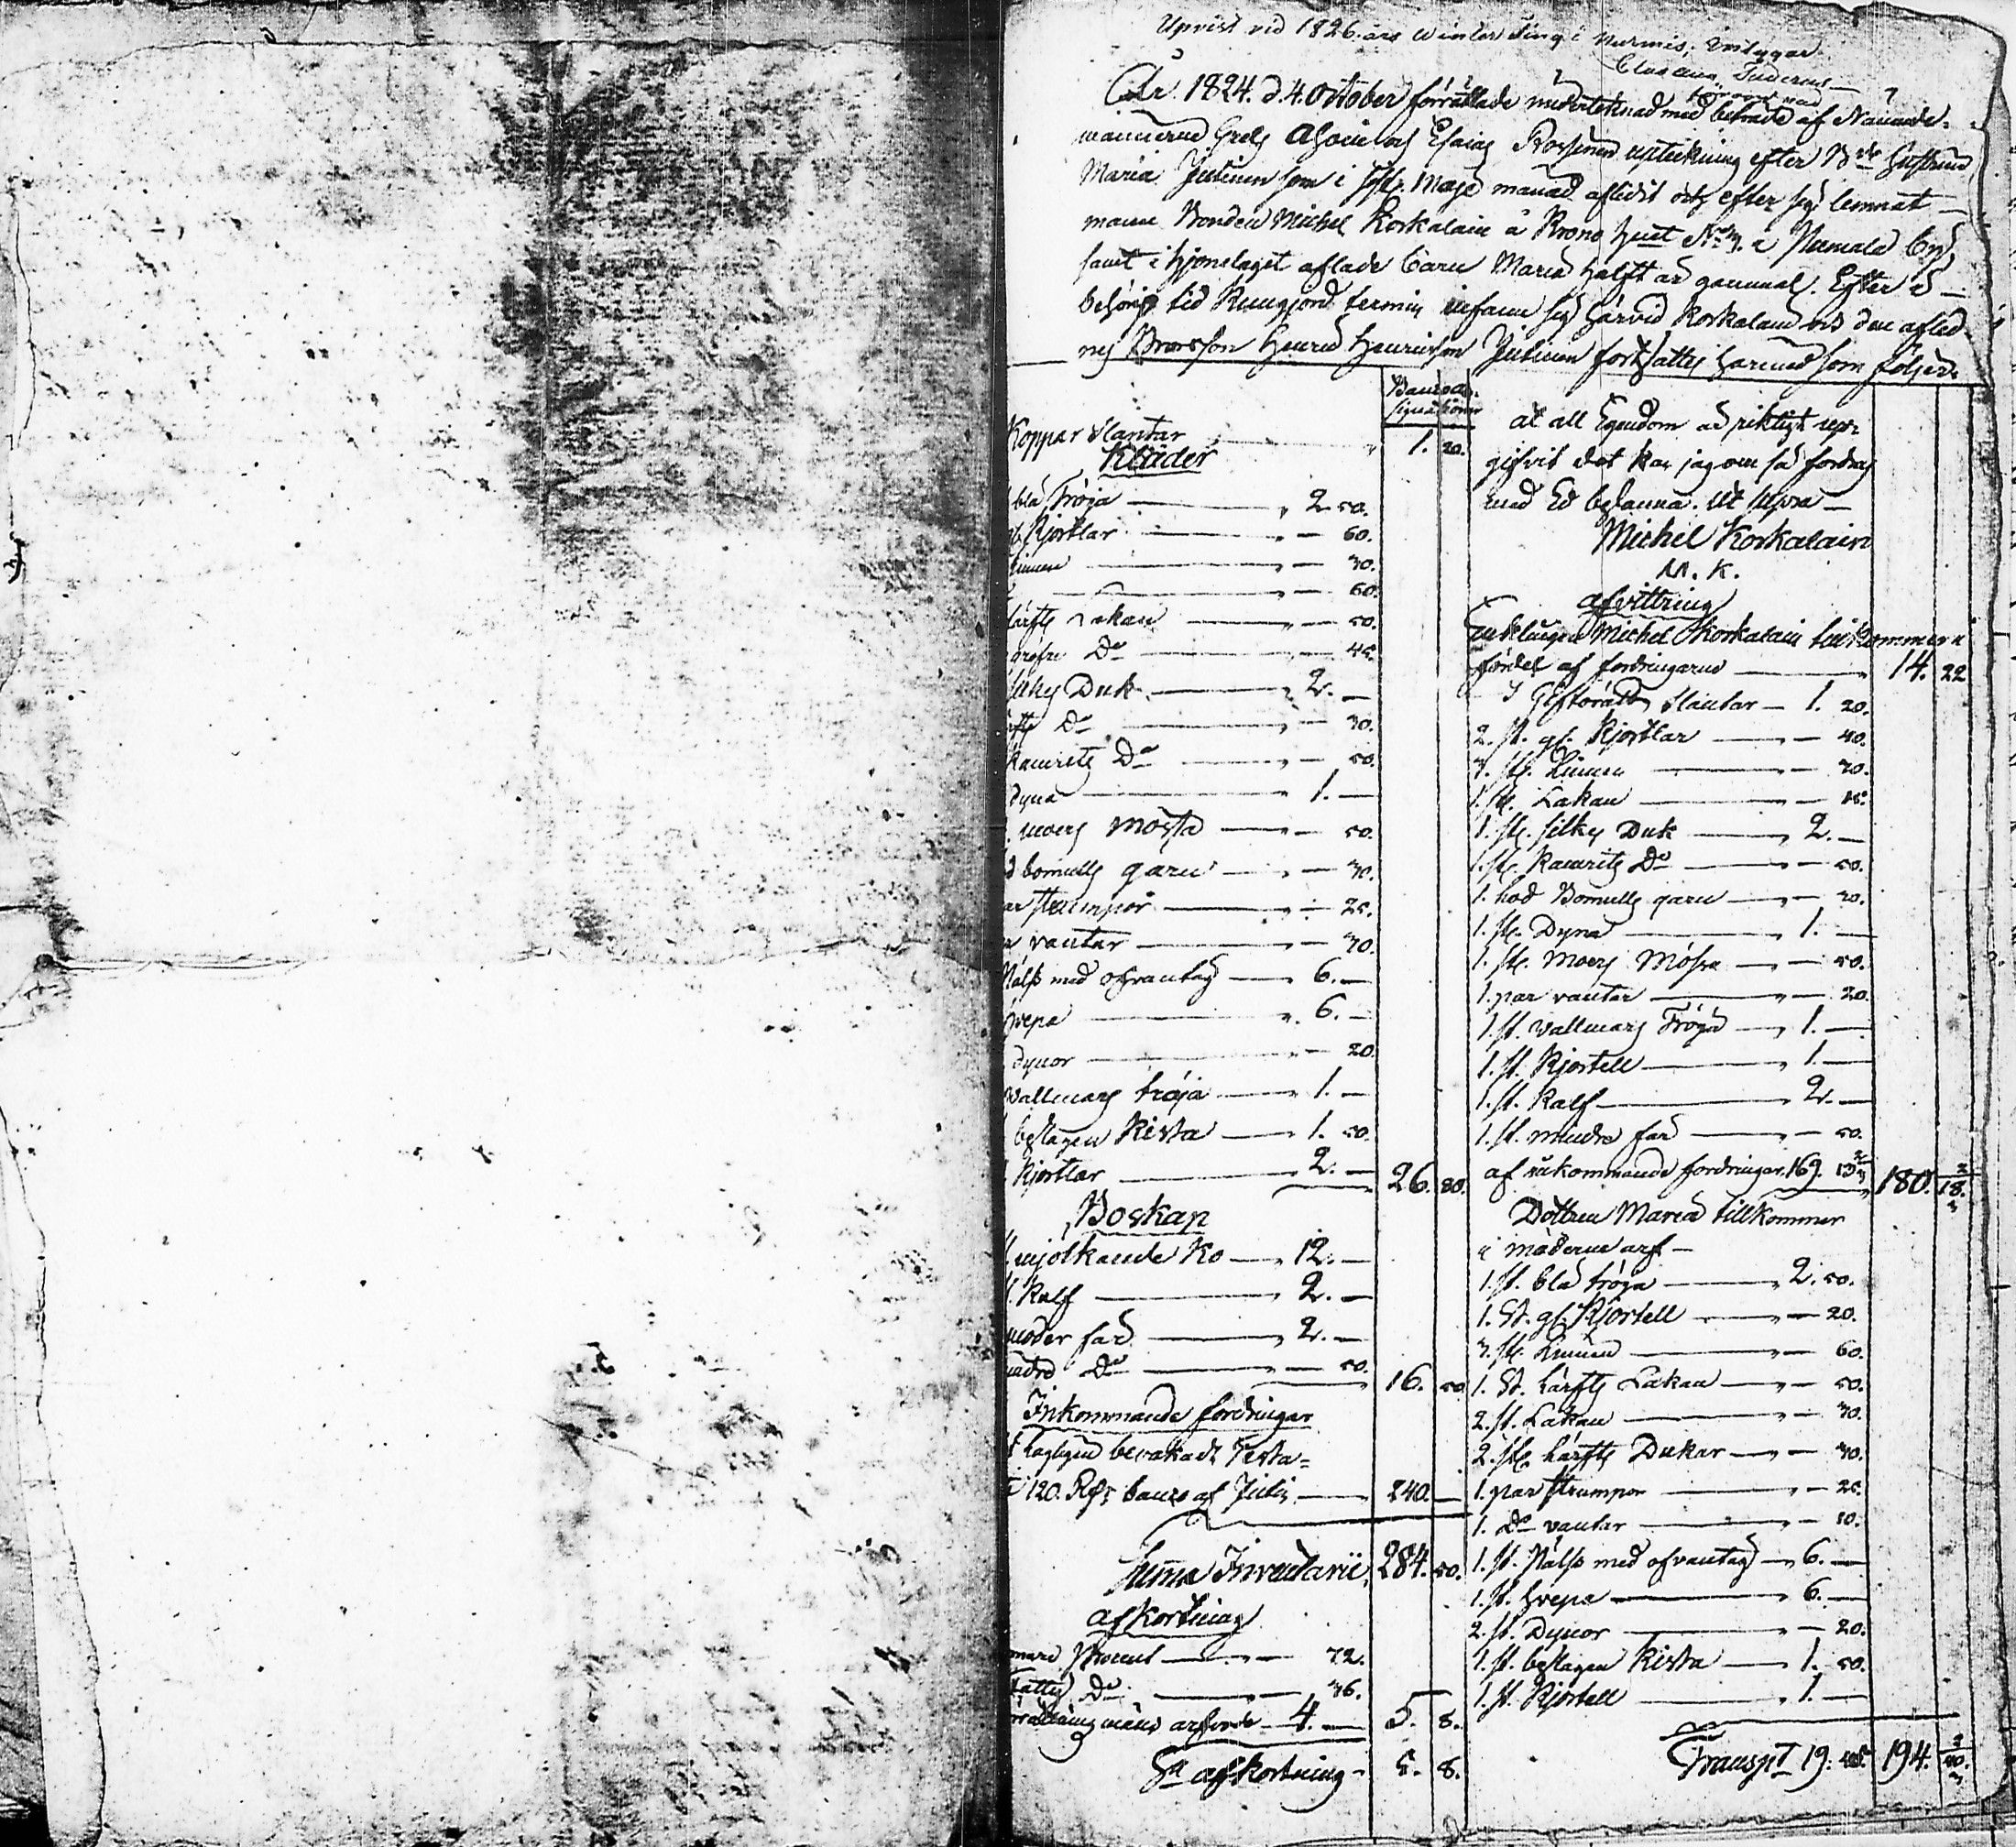 Upvist vid 1826 års Winter Ting i Nurmis,
År 1824. d. 4. October förrättade underteknad med biträde af Nämnde-
männerne Grels och Esaias uptekning efter B:de Hustrun
Maria Jutinen som i sistl. Maji månad aflidit och efter sig lemnat
mannen Bonden Michel Korkalain å Krono Hem:t N:o 3. i by
samt i hjonelaget aflade barn Maria halft år gammal. Efter å
behörig tid kungjord termin infann sig härvid Korkalain och den aflid-
nes Brorsson Henric Henricsson Jutinen fortsattes härmed som följer.
Banco As-
signationer
Koppar Slantar 1. 20.
Kläder
blå Tröja 2 50.
gl. Kjortlar 60.
Linnen
60.
lärfts Lakan 50.
grofre D:o 45.
silkes Duk 2.
D:o 30.
Kamrits D:o 50.
dyna 1.
moers mössa 50.
bomulls garn 30.
par strumpor 25.
vantar 30.
Päls med ofvantag 6.
6.
dynor 20.
vallmars tröja 1.
beslagen Kista 1. 50.
Kjortlar 2. 26. 80.
Boskap
mjölkande Ko 12.
Kalf 2.
moder får 2.
mindre D:o 50. 16. 50
Inkommande fordringar
lagligen bevakadt Testa-
120. banco af 240.
Summa Inventarii 284. 50.
afkortning
Procent 72.
fattig D:o 36.
förrättnings mäns arfvode 4. 5. 8.
S:a afkortning 5. 8.
at all Egendom är riktigt upp-
gifvit det kan jag om så fordras
med Ed bejanna. Ut supra
Michel Korkalain
M. K.
afvittring
Enklingen Michel Korkalain tillkommer i
fördel af fordringarne 14. 22
I Giftorätt Slantar 1. 20.
2. st. gl. Kjortlar 40.
3. st. Linnen 30.
1. st. Lakan 15.
1. st. silkes Duk 2.
1. st. Kamrits D:o 50.
1. Bomulls garn 30.
1. st. Dyna 1.
1. st. Moers Mössa 50.
1. par vantar 20.
1. st. vallmars Tröja 1.
1. st. Kjortell 1.
1. st. Kalf 2.
1. st. mindre får 50.
af inkommande fordringar 169. 13 2/3 180. 18 2/3
Dottren Maria tillkommer
i möderne arf
1. st. blå tröja 2. 50.
1. St. gl. Kjortell 20.
3. st. Linnen 60.
1. St. lärfts Lakan 50.
2. st. Lakan 30.
2. st. lärfts Dukar 30.
1. par strumpor 25.
1. D:o vantar 10.
1. st. Päls med ofvantag 6.
1. st. 6.
2. st. Dynor 20.
1. st. beslagen Kista 1. 50.
1. st. Kjortell 1.
Transpt 19. 45. 194. 40 2/3